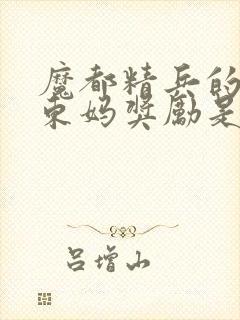 魔都精兵的
东妈奖励是
吕增山